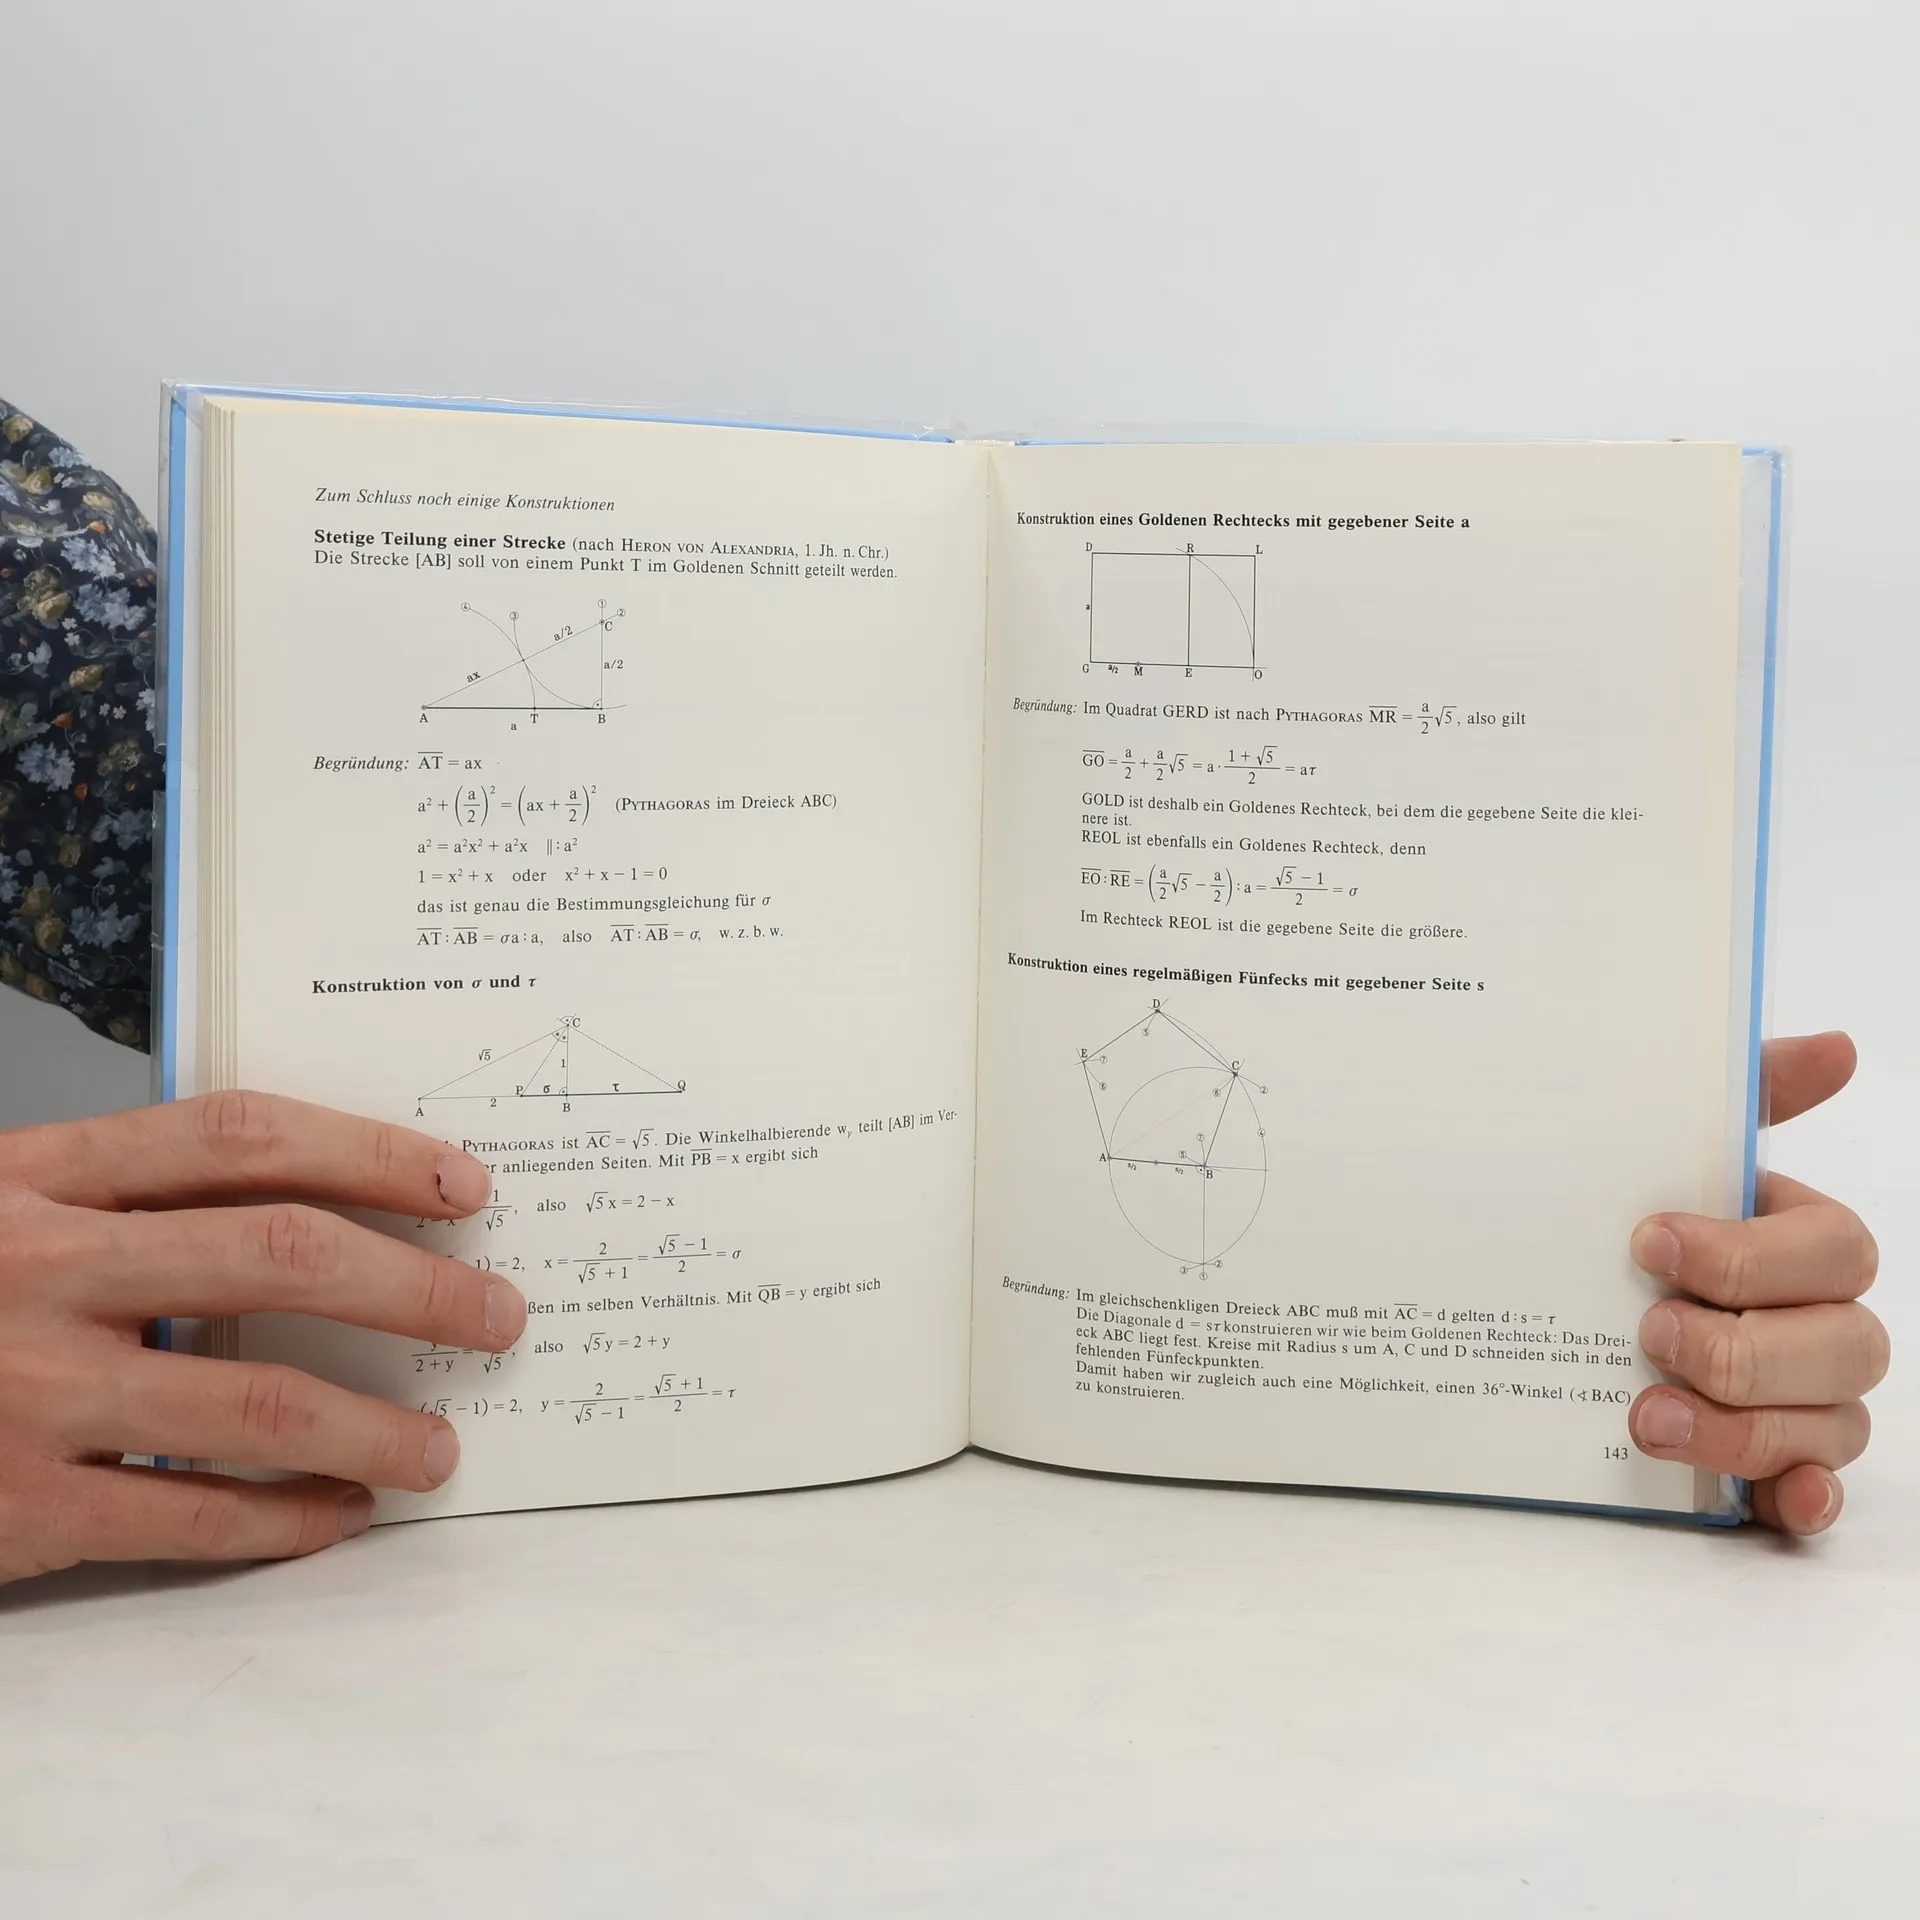 Zum Schluss noch einige Konstruktionen
Stetige Teilung einer Strecke (nach HERON VON ALEXANDRIA, 1. Jh. n. Chr.)
Die Strecke [AB] soll von einem Punkt T im Goldenen Schnitt geteilt werden.
④ ③ ① ②
C
a/2
a/2
ax
A T B
a
Begründung: A̅T̅ = ax
a² + (a/2)² = (ax + a/2)² (PYTHAGORAS im Dreieck ABC)
a² = a²x² + a²x ||: a²
1 = x² + x oder x² + x − 1 = 0
das ist genau die Bestimmungsgleichung für σ
A̅T̅ : A̅B̅ = σa : a, also A̅T̅ : A̅B̅ = σ, w. z. b. w.
Konstruktion von σ und τ
C
√5
1
P σ τ Q
A 2 B
PYTHAGORAS ist A̅C̅ = √5. Die Winkelhalbierende wᵧ teilt [AB] im Ver-
anliegenden Seiten. Mit P̅B̅ = x ergibt sich
1/√5, also √5 x = 2 − x
1) = 2, x = 2/(√5 + 1) = (√5 − 1)/2 = σ
im selben Verhältnis. Mit Q̅B̅ = y ergibt sich
y/(2 + y) = /√5, also √5 y = 2 + y
(√5 − 1) = 2, y = 2/(√5 − 1) = (√5 + 1)/2 = τ
Konstruktion eines Goldenen Rechtecks mit gegebener Seite a
D R L
a
G a/2 M E O
Begründung: Im Quadrat GERD ist nach PYTHAGORAS M̅R̅ = a/2 √5, also gilt
G̅O̅ = a/2 + a/2 √5 = a · (1 + √5)/2 = aτ
GOLD ist deshalb ein Goldenes Rechteck, bei dem die gegebene Seite die klei-
nere ist.
REOL ist ebenfalls ein Goldenes Rechteck, denn
E̅O̅ : R̅E̅ = (a/2 √5 − a/2) : a = (√5 − 1)/2 = σ
Im Rechteck REOL ist die gegebene Seite die größere.
Konstruktion eines regelmäßigen Fünfecks mit gegebener Seite s
D
⑤
E ⑦ C
⑥ ⑥ ②
⑦ ④
A ⑤
s/2 s/2 B
③ ① ②
Begründung: Im gleichschenkligen Dreieck ABC muß mit A̅C̅ = d gelten d : s = τ
Die Diagonale d = sτ konstruieren wir wie beim Goldenen Rechteck: Das Drei-
eck ABC liegt fest. Kreise mit Radius s um A, C und D schneiden sich in den
fehlenden Fünfeckpunkten.
Damit haben wir zugleich auch eine Möglichkeit, einen 36°-Winkel (∢ BAC)
zu konstruieren.
143